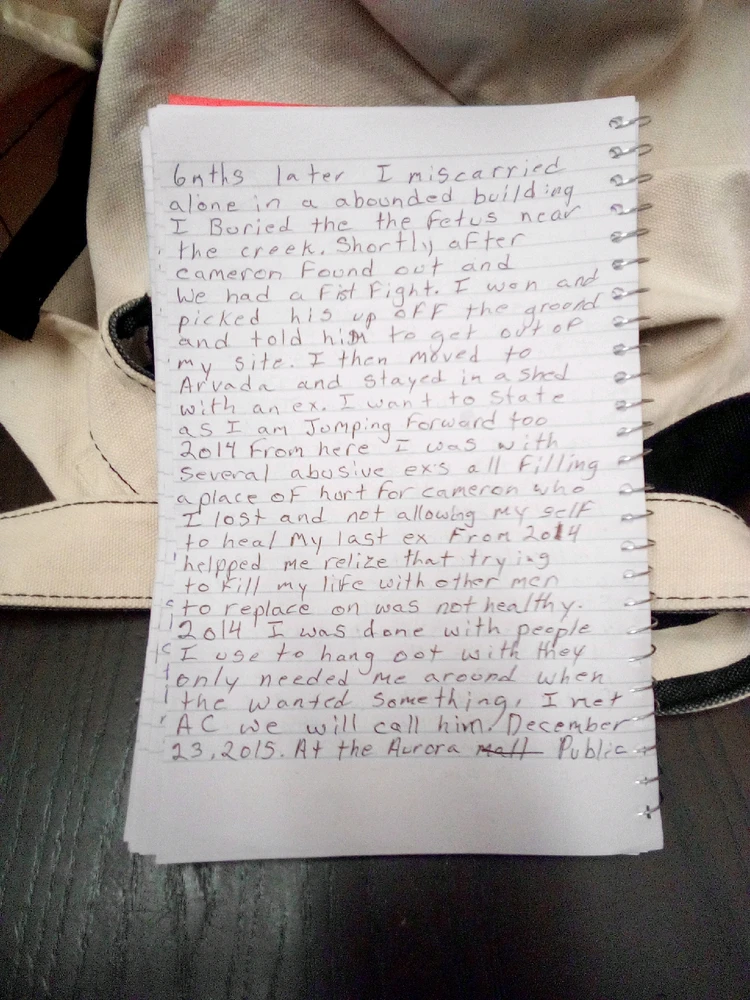 6nths later I miscarried
alone in a abounded building
I Buried the the fetus near
the creek. Shortly after
cameron Found out and
We had a Fist Fight. I won and
picked his up OFF the ground
and told him to get out of
my site. I then moved to
Arvada and stayed in a shed
with an ex. I want to state
as I am Jumping Forward too
2014 From here I was with
Several abusive ex's all Filling
a place OF hurt for cameron who
I lost and not allowing my self
to heal My last ex From 2014
helpped me relize that trying
to Fill my life with other men
to replace on was not healthy.
2014 I was done with people
I use to hang out with they
only needed me around when
the wanted Something, I met
AC we will call him. December
23, 2015. At the Aurora mall Public